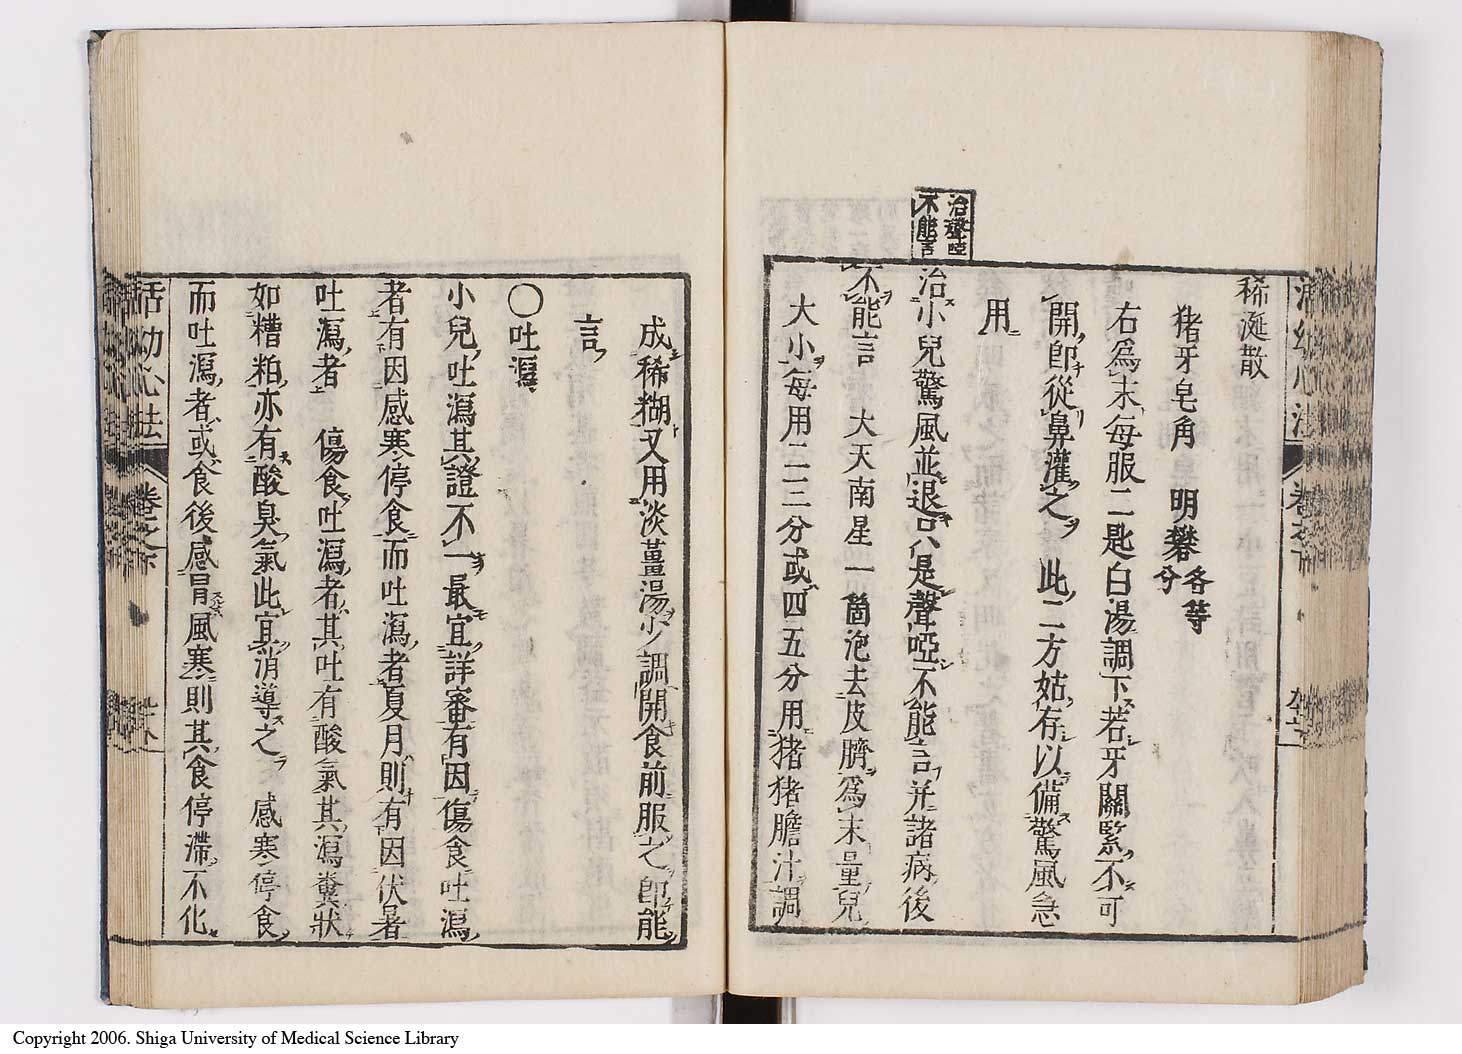 活幼心法
卷之下
稀涎散
猪牙皂角　明礬各等分
右爲末每服二匙白湯調下若牙關緊不可
開卽從鼻灌之　此二方姑存以備驚風急
用
治聲啞不能言
治小兒驚風並退只是聲啞不能言并諸病後
不能言　大天南星一箇泡去皮臍爲末量兒
大小每用二三分或四五分用猪猪膽汁調
成稀糊又用淡薑湯少調開食前服之卽能
言
〇吐瀉
小兒吐瀉其證不一最宜詳審有因傷食吐瀉
者有因感寒停食而吐瀉者夏月則有因伏暑
吐瀉者　傷食吐瀉者其吐有酸氣其瀉糞狀
如糟粕亦有酸臭氣此宜消導之　感寒停食
而吐瀉者或食後感冒風寒則其食停滯不化
活幼心法
卷之下
Copyright 2006. Shiga University of Medical Science Library